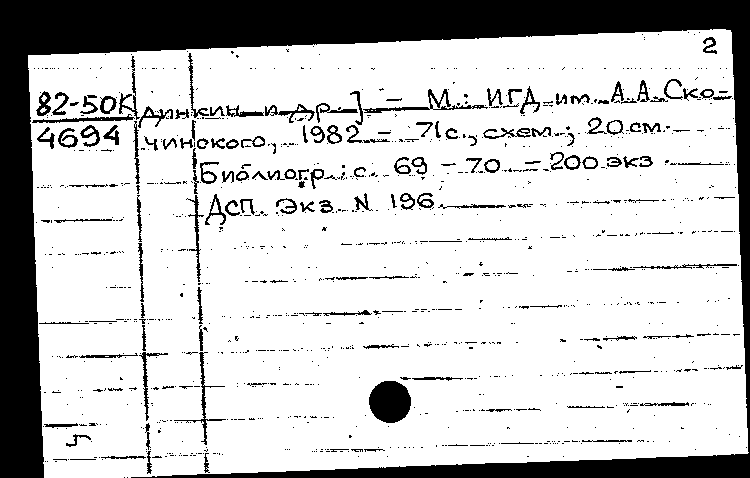 2
82-50К динкин и др.] - М.: ИГД им. А.А.Ско-
4694 чинского, 1982 - 71с., схем.; 20 см.
Библиогр.: с. 69 - 70 - 200 экз.
ДСП. Экз. N 196.